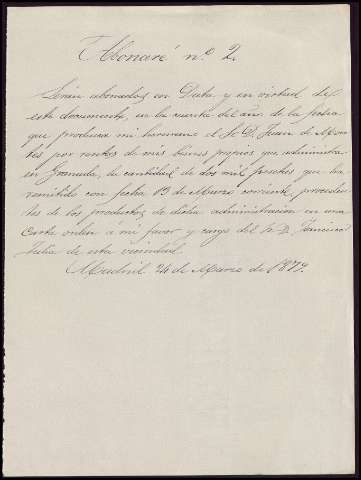 Abonaré nº 2.
Serán abonadas en Data, y en virtud de
este documento, en la cuenta del año de la fecha
que produzca mi hermano el Sr. D. Juan de Mon-
tes por rentas de mis bienes propios que administra
en Granada, la cantidad de dos mil pesetas que ha
remitido con fecha 19 de Marzo corriente, proceden-
tes de los productos de dicha administracion en una
Carta orden a mi favor y cargo del Sr. D. Francisco
de esta vecindad.
Madrid 24 de Marzo de 1879.